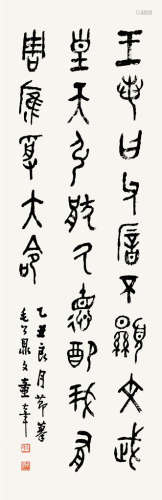 王若曰父㾕不顯文武
皇天引猒厥德配我有
周雁受大命
乙丑良月節摹
毛公鼎文董